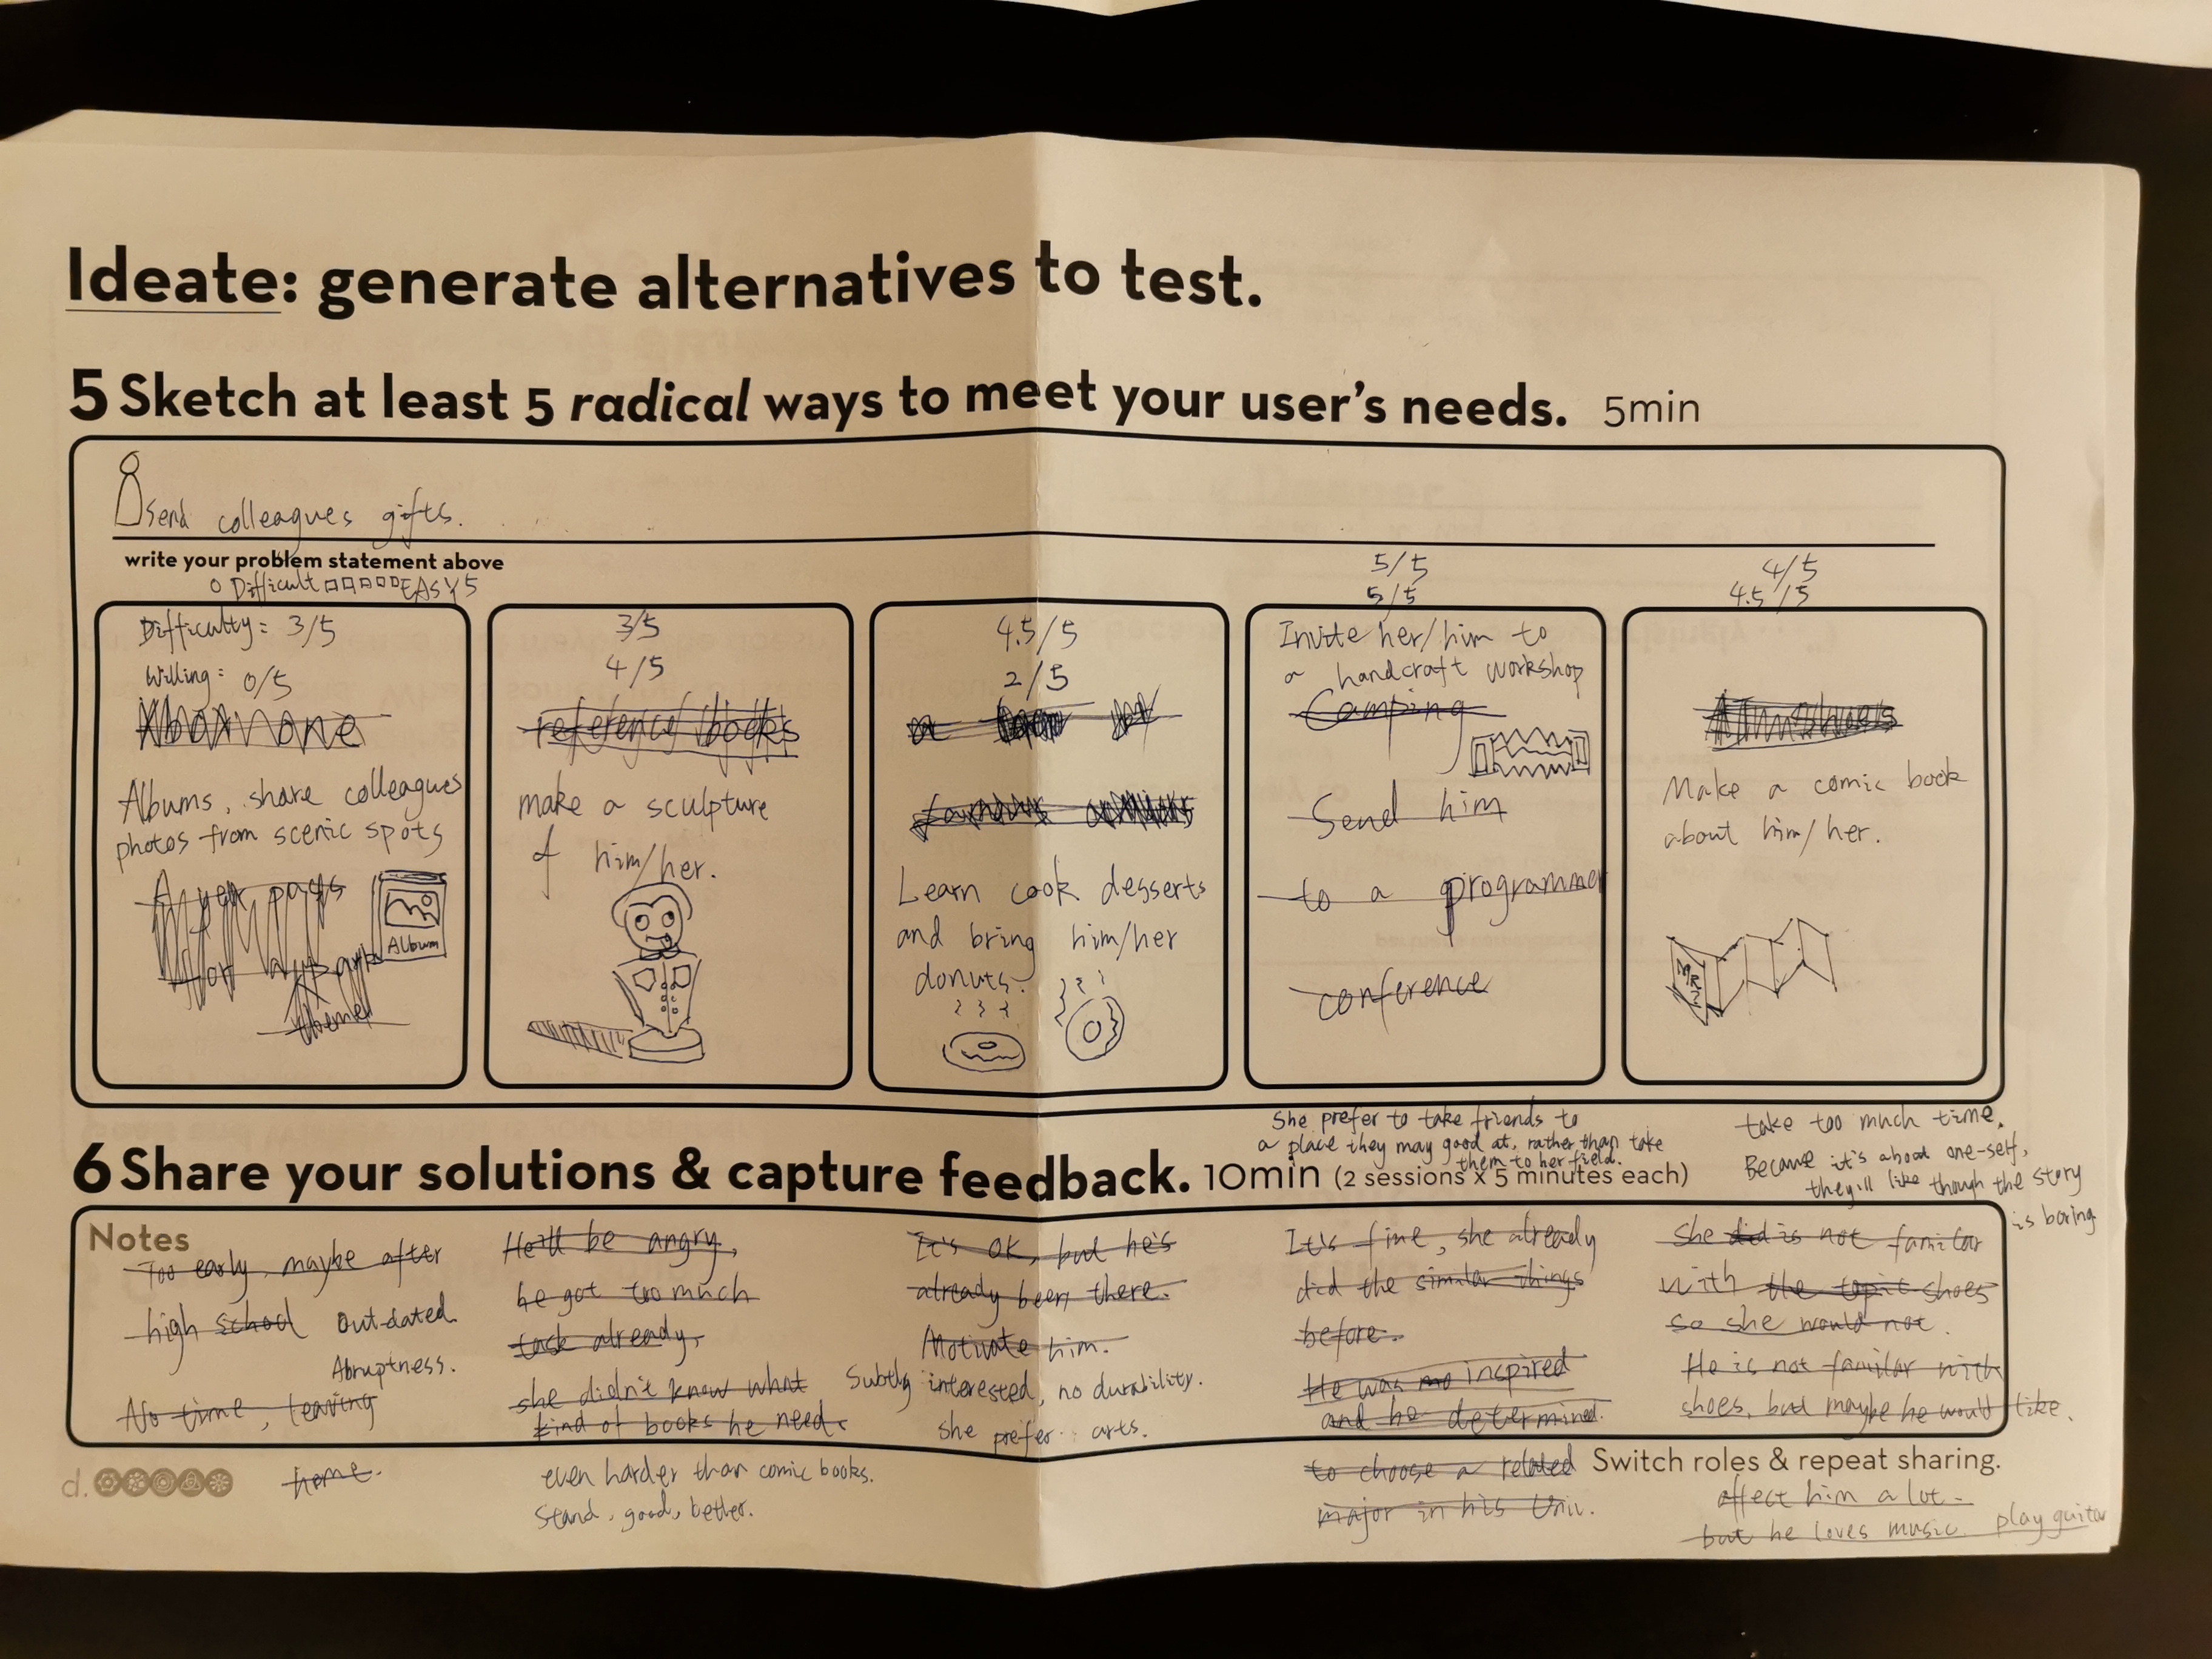 Ideate: generate alternatives to test.
5 Sketch at least 5 radical ways to meet your user's needs. 5min
Send colleagues gifts.
write your problem statement above
0 Difficult EASY 5
Difficulty: 3/5
Willing: 0/5
Xbox one
Albums, share colleagues
photos from scenic spots
Album
3/5
4/5
reference books
make a sculpture
of him/her.
4.5/5
2/5
a
Learn cook desserts
and bring him/her
donuts.
5/5
5/5
Invite her/him to
a handcraft workshop
Camping
Send him
to a programmer
conference
4/5
4.5/5
Make a comic book
about him/her.
6 Share your solutions & capture feedback. 10min (2 sessions x 5 minutes each)
She prefer to take friends to
a place they may good at, rather than take
them to her field.
take too much time.
Because it's about one-self,
they'll like though the story
is boring
Notes
Too early, maybe after
high school
Out-dated
Abruptness.
No time, leaving
home.
He'll be angry,
he got too much
task already,
she didn't know what
kind of books he need.
even harder than comic books.
Stand, good, better.
It's OK, but he's
already been there.
Motivate him.
Subtly interested, no durability.
She prefer arts.
It's fine, she already
did the similar things
before.
He was inspired
and he determined
to choose a related
major in his Univ.
She did is not familar
with the topic shoes
so she would not.
He is not familar with
shoes, but maybe he would like.
Switch roles & repeat sharing.
affect him a lot
but he loves music play guitar
d.